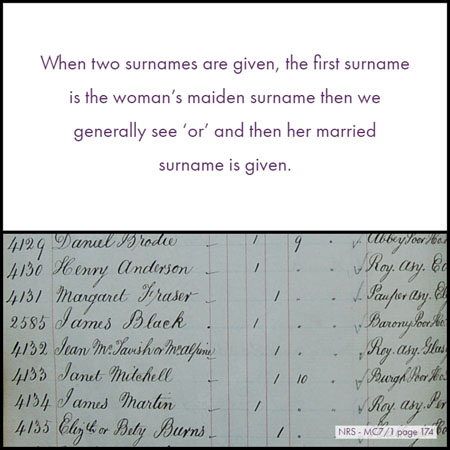 When two surnames are given, the first surname
is the woman's maiden surname then we
generally see 'or' and then her married
surname is given.
4129 Daniel Brodie 1 9 Abbey Poor Ho
4130 Henry Anderson 1 Roy. Asy. Ed
4131 Margaret Fraser 1 Pauper Asy. El
2585 James Black 1 Barony Poor Ho
4132 Jean McTavish or McAlpine 1 Roy. Asy. Glas
4133 Janet Mitchell 1 10 Burgh Poor Ho
4134 James Martin 1 Roy. Asy. Per
4135 Elizth or Bety Burns 1
NRS - MC7/1 page 174